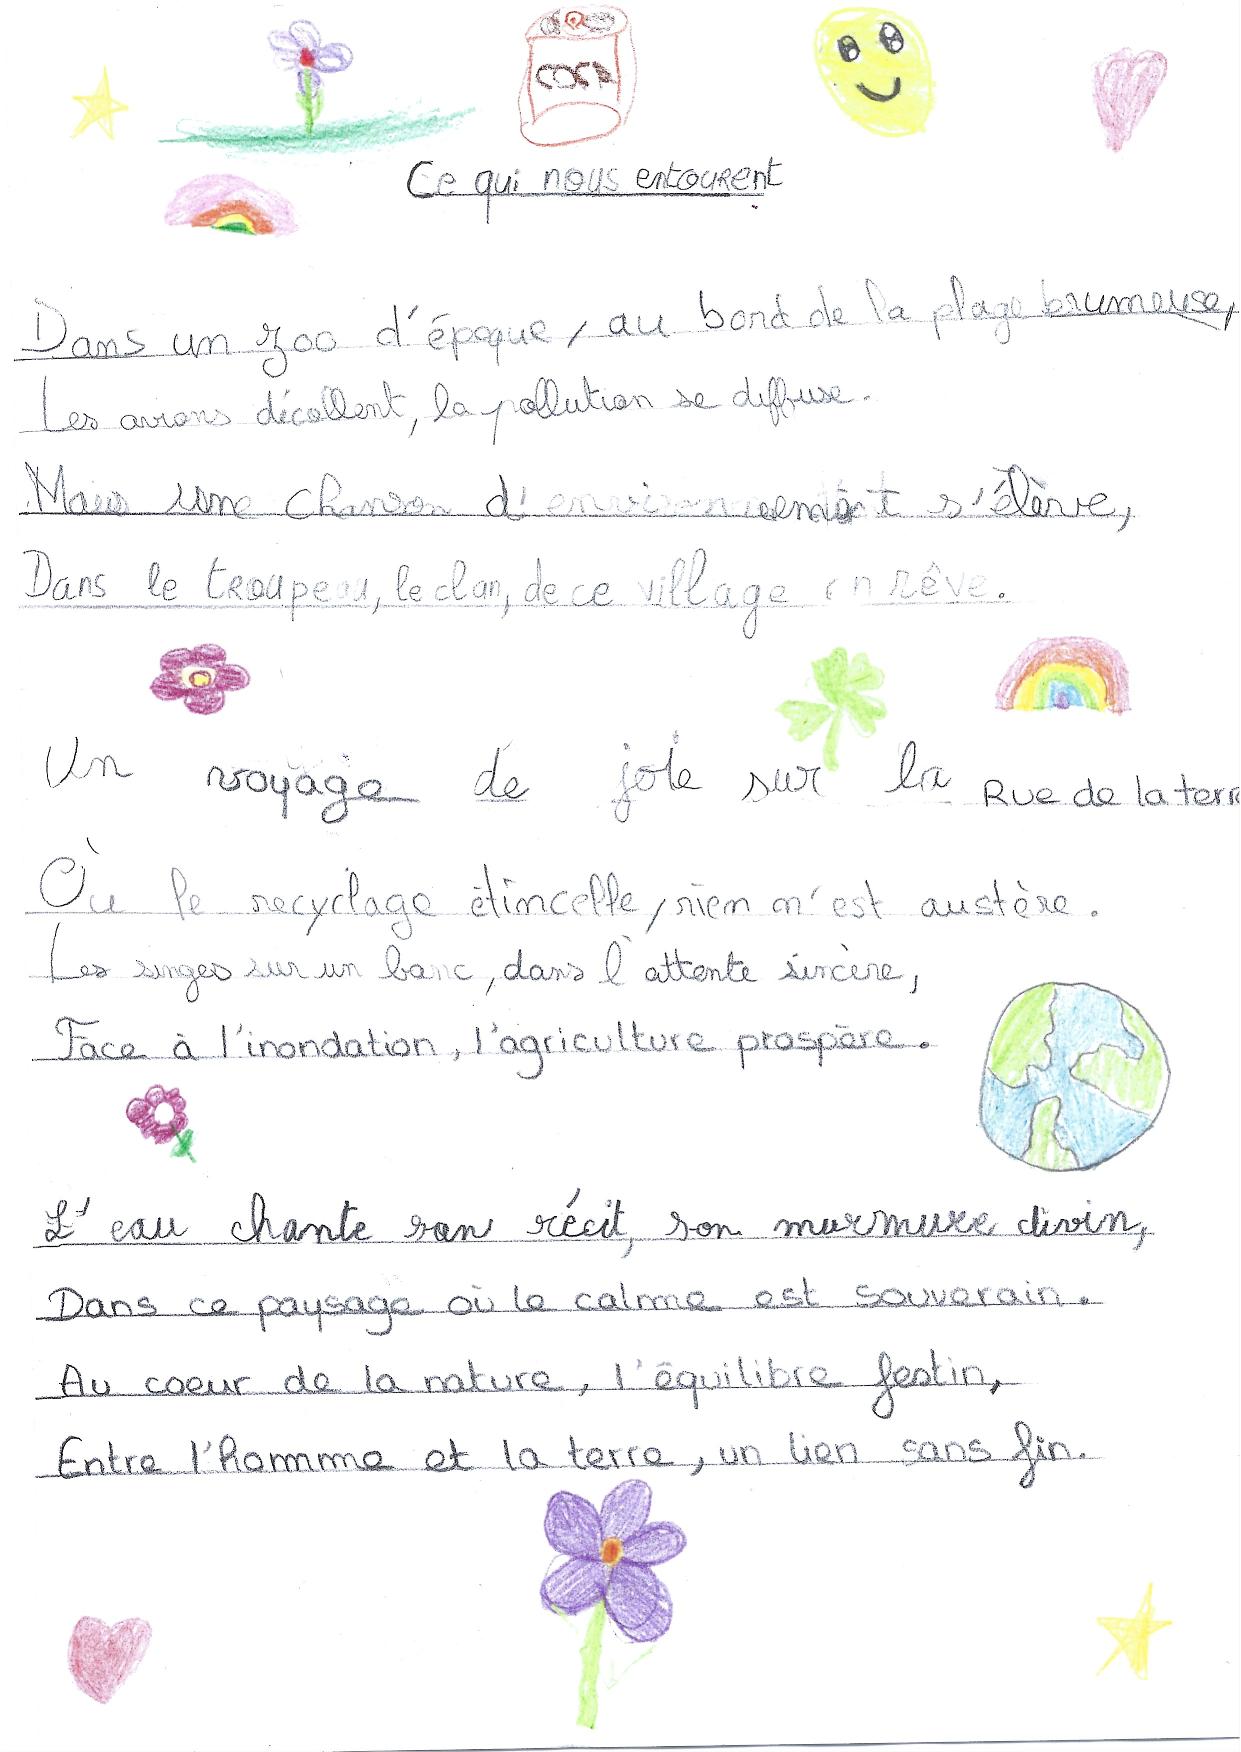 COCA
Ce qui nous entourent
Dans un zoo d'époque, au bord de la plage brumeuse,
Les avions décollent, la pollution se diffuse.
Mais une chanson d'environnement s'élève,
Dans le troupeau, le clan, de ce village en rêve.
Un voyage de joie sur la Rue de la terre
Où le recyclage étincelle, rien n'est austère.
Les singes sur un banc, dans l'attente sincère,
Face à l'inondation, l'agriculture prospère.
L'eau chante son récit, son murmure divin,
Dans ce paysage où le calme est souverain.
Au coeur de la nature, l'équilibre festin,
Entre l'homme et la terre, un lien sans fin.